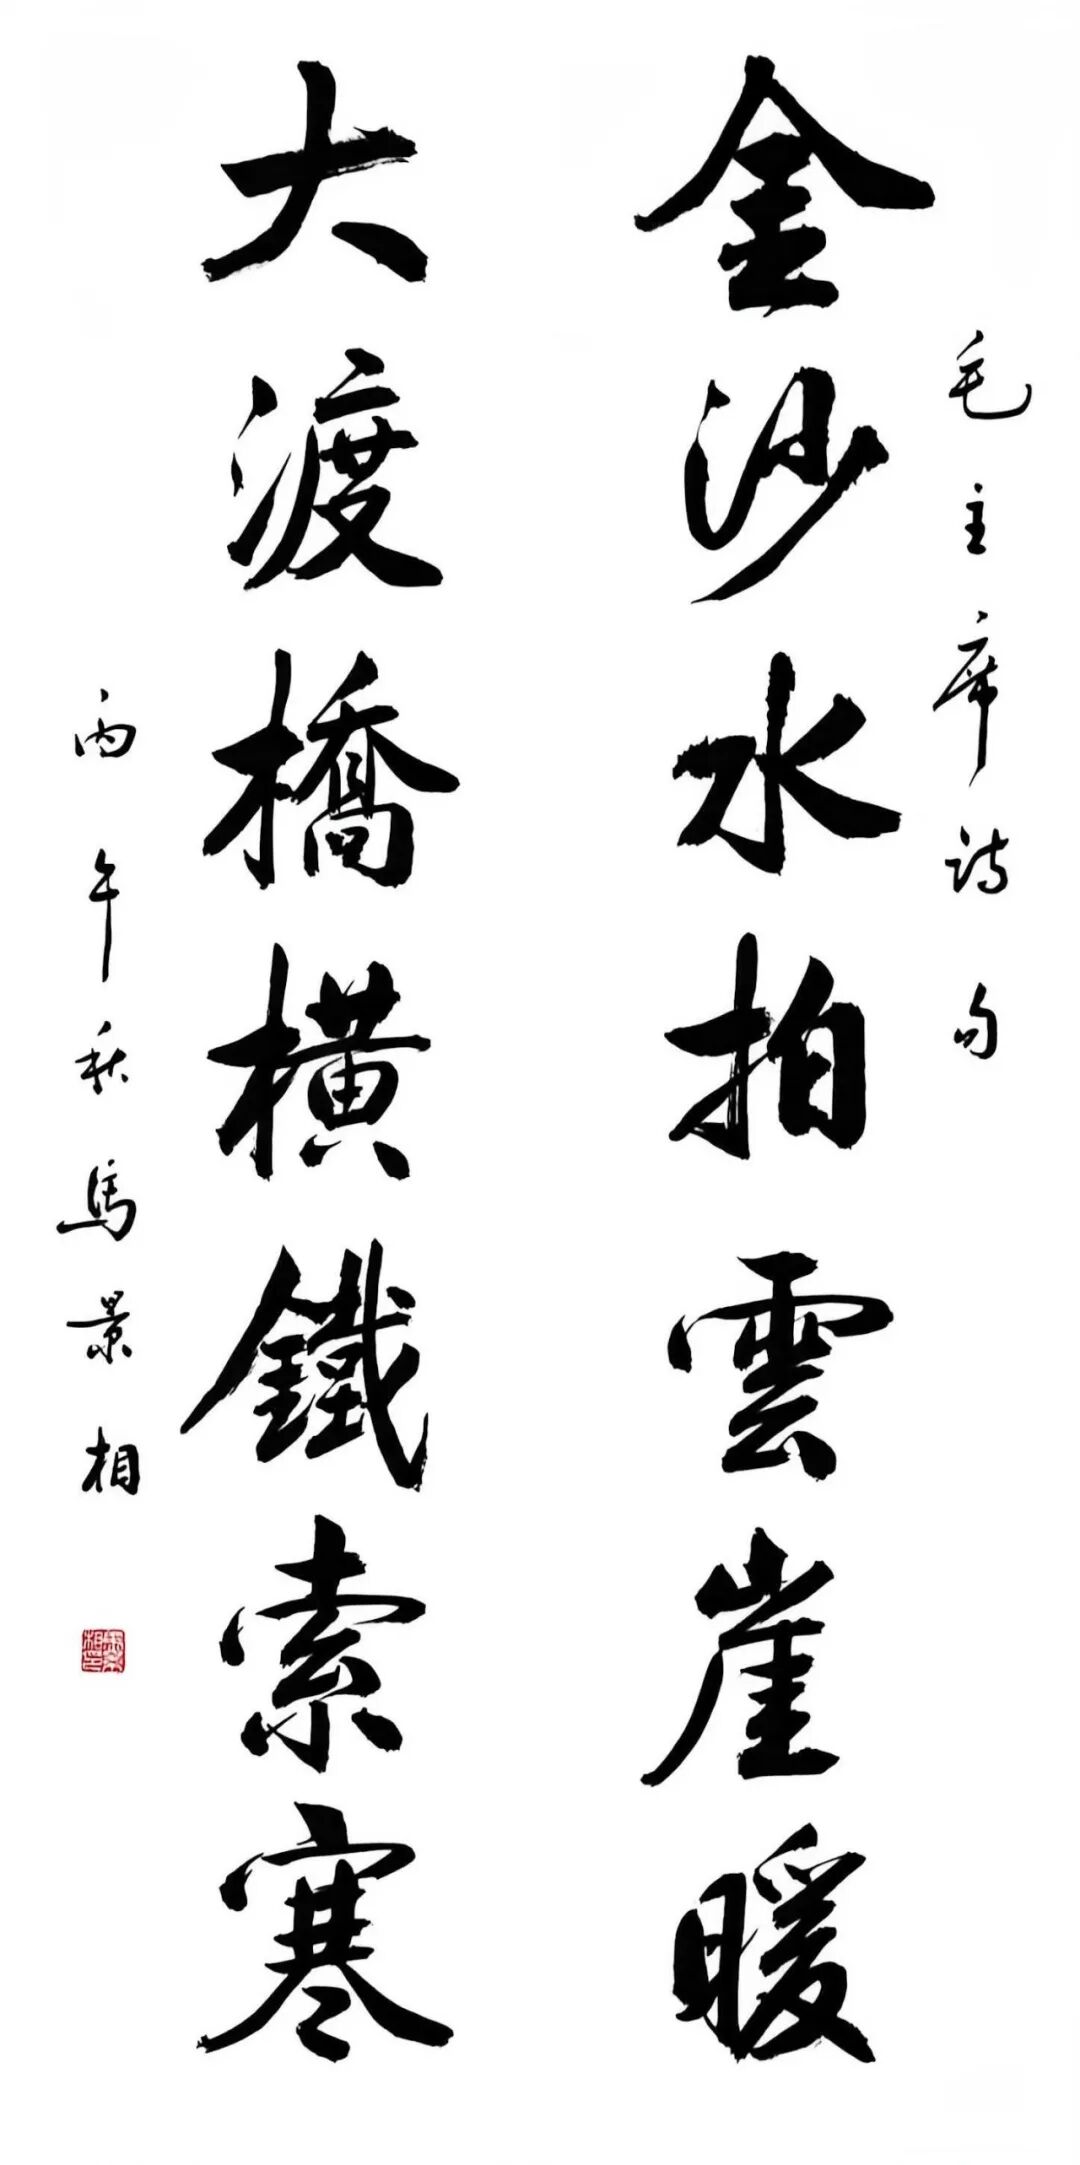 毛主席诗句
金沙水拍雲崖暖
大渡橋橫鐵索寒
丙午秋馬景相